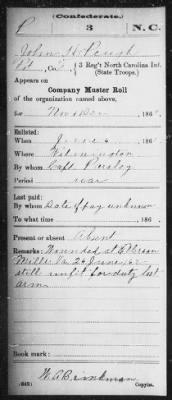 (Confederate.)
P 3 N.C.
John H.
Co. 3 Reg't North Carolina Inf.
(State Troops.)
Appears on
Company Muster Roll
of the organization named above,
for Nov & Dec, 186
Enlisted:
When June 6, 186
Where Wilmington
By whom Capt
Period war
Last paid:
By whom Date of pay unknown
To what time , 186
Present or absent Absent
Remarks: Wounded at Ellerson
Mills Va 26 June 62
still unfit for duty lost
arm
Book mark:
W. A. Brinkman
(642) Copyist.